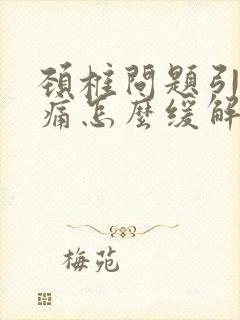 頚椎問題引
痛怎麼緩解
梅苑